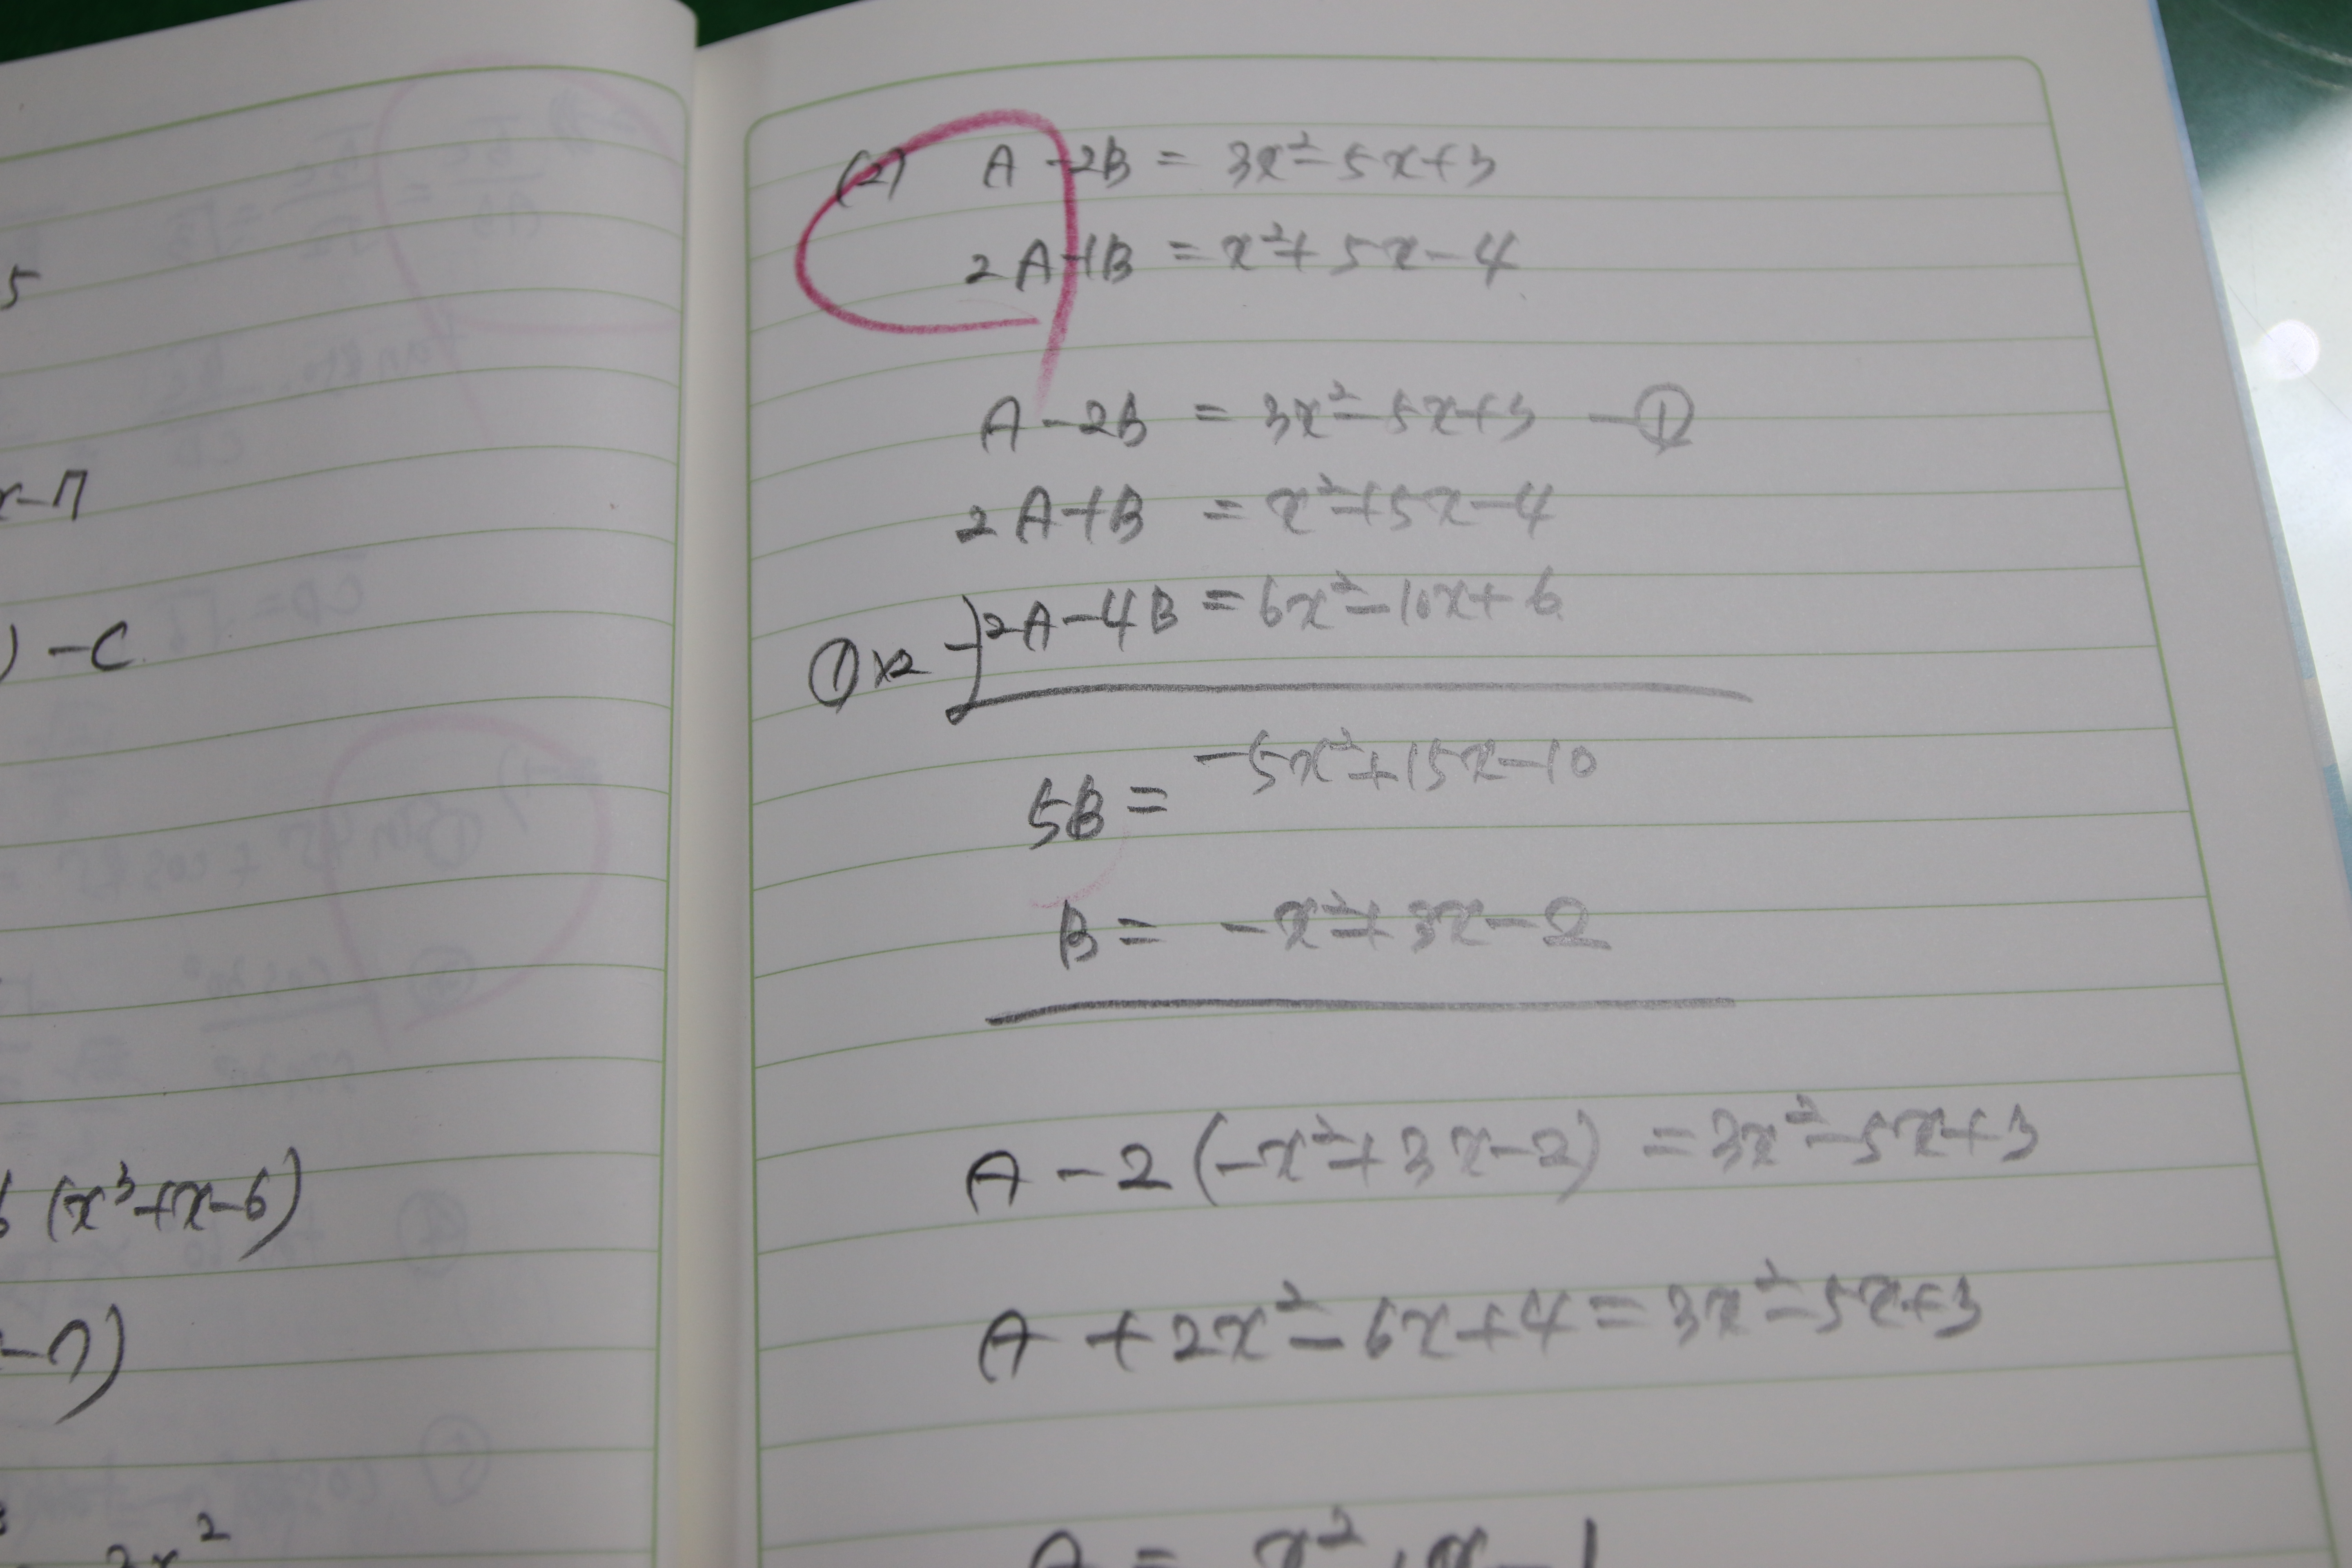 5
x-7
) -C.
6 (x³+x-6)
-7)
2x²
(2) A-2B = 3x²-5x+3
2A+B = x²+5x-4
A-2B = 3x²-5x+3 -①
2A+B = x²+5x-4
①×2 -) 2A-4B = 6x²-10x+6
5B = -5x²+15x-10
B = -x²+3x-2
A-2(-x²+3x-2) = 3x²-5x+3
A+2x²-6x+4 = 3x²-5x+3
A = x²+x-1